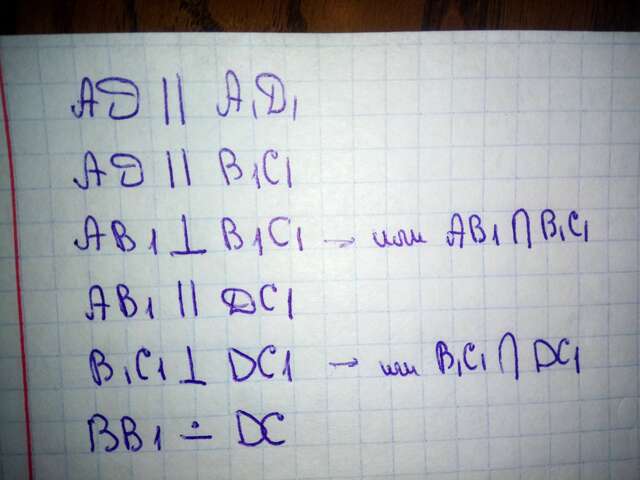 AD || A₁D₁
AD || B₁C₁
AB₁ ⊥ B₁C₁ → или AB₁ ∩ B₁C₁
AB₁ || DC₁
B₁C₁ ⊥ DC₁ → или B₁C₁ ∩ DC₁
BB₁ ∸ DC